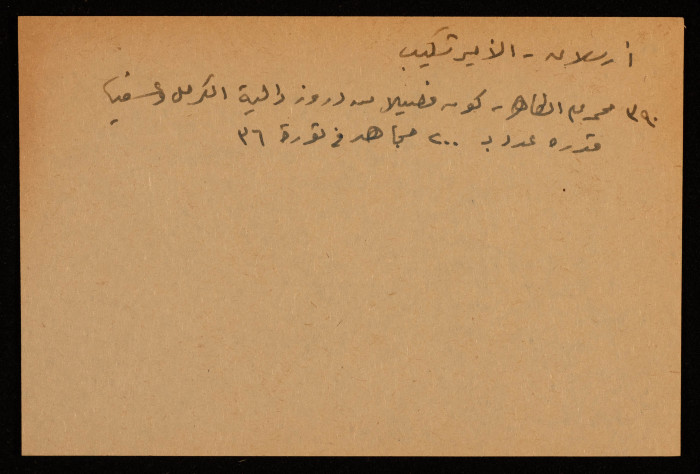 أرسلان - الأمير شكيب
٣٩٠ محمد علي الطاهر - كون فصيلا من دروز دالية الكرمل وعسفيا
قدره عدد ب ٢٠٠ مجاهد في ثورة ٣٦